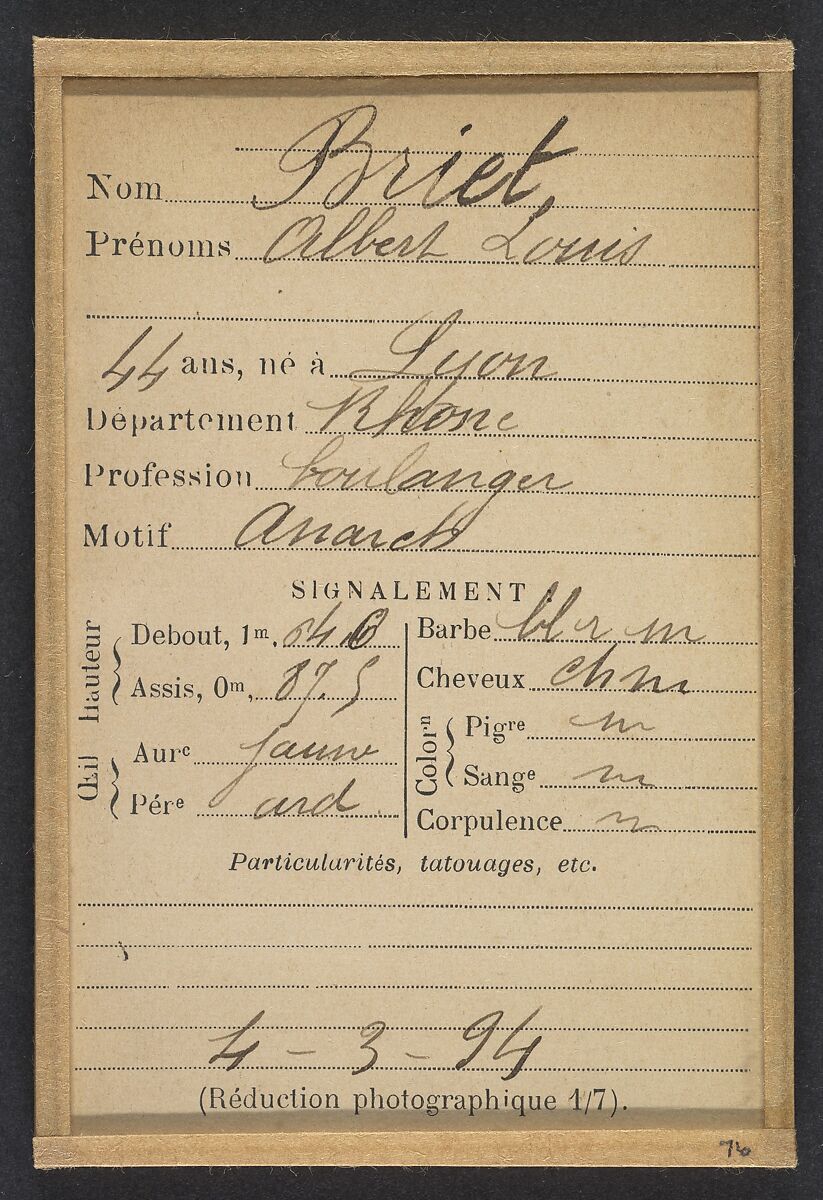 Nom Briet,
Prénoms Albert Louis
44 ans, né à Lyon
Département Rhône
Profession boulanger
Motif Anarch
SIGNALEMENT
hauteur
Debout, 1m, 64.
Assis, 0m, 87.5
Œil
Aure jaune
Pére ard
Barbe bl r m
Cheveux ch m
Colorn
Pigre m
Sange m
Corpulence m
Particularités, tatouages, etc.
4 - 3 - 94
(Réduction photographique 1/7).